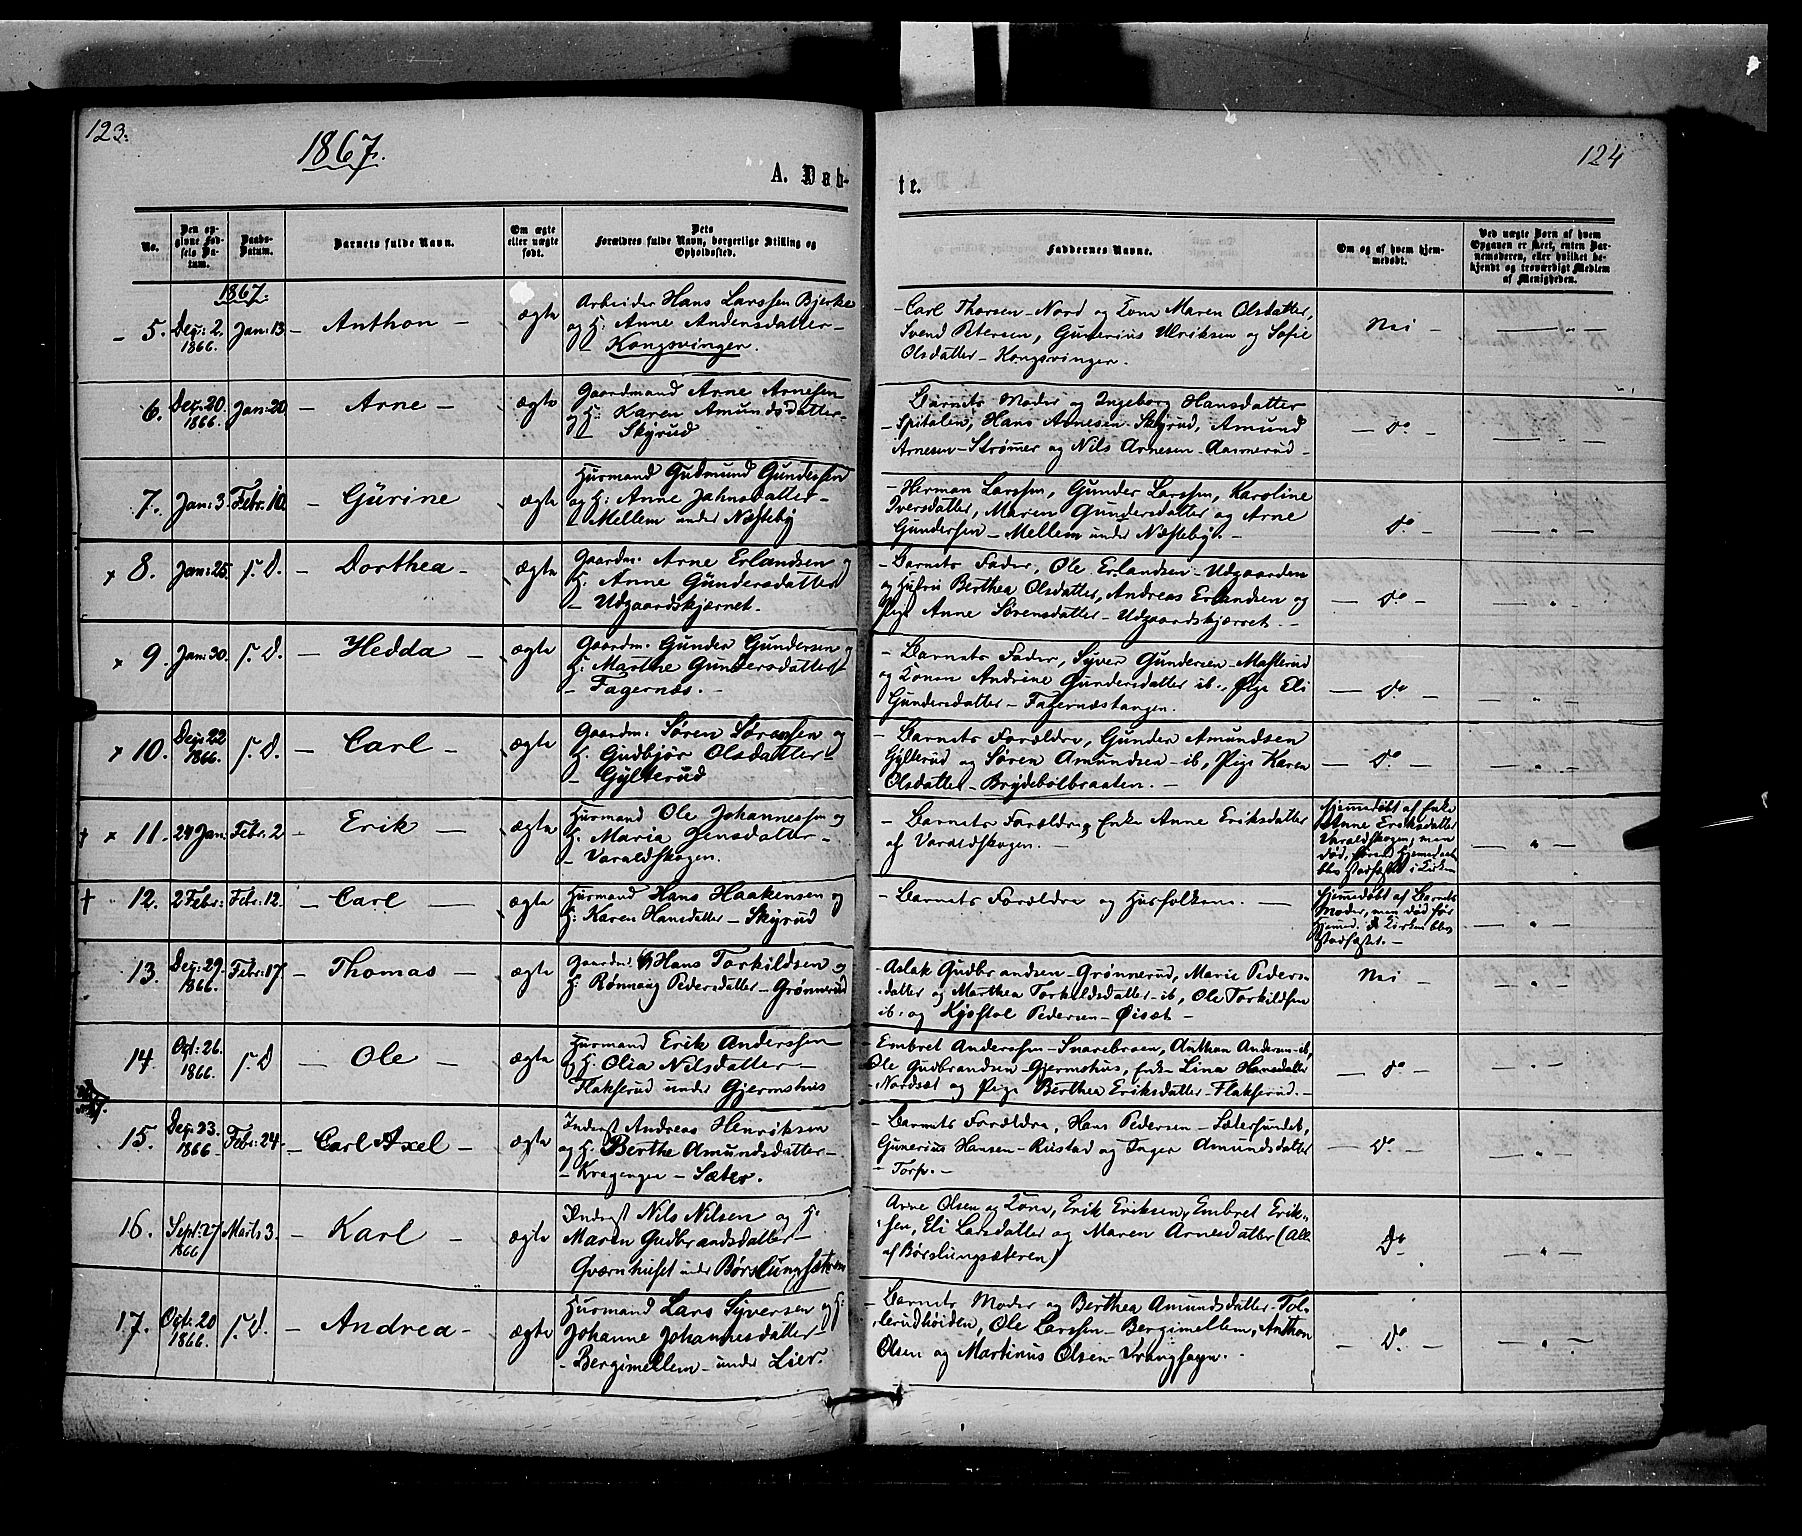 123.
1867.
A. Døb-
No.
Den op-
givne Fød-
sels Da-
tum.
Daabs-
Datum.
Barnets fulde Navn.
Om ægte
eller uægte
født.
Dets
Forældres fulde Navn, borgerlige Stilling og
Opholdssted.
1867.
5. Dec: 2. 1866. Jan: 13 – Anthon – ægte
Arbeider Hans Larssen Bjerke
og H: Anne Andensdatter –
– Kongsvinger.
6. Dec: 20. 1866. Jan: 20 – Arne – ægte
Gaardmand Arne Arnesen
og H: Karen Amundsdatter –
– Skyrud
7. Jan: 3. Febr: 10. – Gurine ægte
Husmand Gudmund Gundersen
og H: Anne Jahnsdatter –
– Mellem under Næsteby
8. Jan: 25. s. D. – Dorthea – ægte
Gaardm: Arne Erlandsen og
H: Anne Gundersdatter
– Udgaardskjærnet –
9. Jan: 30. s. D. – Hedda – ægte
Gaardm: Gunder Gundersen og
H: Marthe Gundersdatter
– Fagernæs. –
10. Dec: 22 1866. s. D. – Carl – ægte
Gaardm: Søren Sørensen og
H: Gudbjør Olsdatter –
– Gylterud
11. 24 Jan: Febr: 2 – Erik – ægte
Husmand Ole Johannessen og
H: Maria Jensdatter –
– Varaldskogen.
12. 2 Febr: Febr: 12. – Carl – ægte
Husmand Hans Haakensen og
H: Karen Hansdatter – Skyrud
13. Dec: 29 1866. Febr: 17 – Thomas – ægte
Gaardm: Hans Torkildsen og
H: Rønnaug Pedersdatter – Grønnerud
14. Oct: 26. 1866. s. D – Ole ægte
Husmand Erik Anderssen
og H: Olia Nilsdatter –
Flakserud under Gjermshus
15. Dec: 23. 1866 Febr: 24 – Carl Axel – ægte
Inderst Andreas Henriksen
og H. Berthe Amundsdatter –
– Kragenger – Sæter.
16. Sept: 27 1866 Marts 3. – Karl – ægte
Inderst Nils Nilsen og H:
Maren Gudbrandsdatter –
Qværnhuset under Børslungsæteren
17. Oct: 20 1866. s. D. – Andrea – ægte
Husmand Lars Syversen og H:
Johanne Johannesdatter –
– Bergimellem – under Lier.
124
te.
Faddernes Navne.
Om og af hvem hjem-
medøbt.
Ved uægte Børn af hvem
Opgaven er skeet, enten Bar-
nemoderen, eller hvilket be-
kjendt og troværdigt Medlem
af Menigheden.
– Carl Thorsen – Nord og Kone Maren Olsdatter,
Svend Petersen, Gunerius Ulriksen og Sofie
Olsdatter – Kongsvinger.
Nei –
– Barnets Moder og Ingeborg Hansdatter
– Spitalen, Hans Arnesen – Skyrud, Amund
Arnesen – Strømer og Nils Arnesen – Aasnerud –
– Do –
– Herman Larssen, Gunder Larssen, Karoline
Iversdatter, Maren Gundersdatter og Arne
Gundersen – Mellem under Næsteby. –
Do
– Barnets Fader, Ole Erlandsen – Udgaarden
og Hustru Berthea Olsdatter, Andreas Erlandsen og
Pige Anne Sørensdatter – Udgaardskjærnet. –
– Do –
– Barnets Fader, Syver Gundersen – Masterud
og Konen Andrine Gundersdatter ib., Pige Eli
Gundersdatter – Fagernæstangen.
– Do –
– Barnets Forældre, Gunder Amundsen
Gylterud og Søren Amundsen – ib, Pige Karen
Olsdatter – Brydebølbraaten. –
– Do –
– Barnets Forældre og Enke Anne Eriksdatter
af Varaldskogen. –
Hjemmedøbt af Enke
Anne Eriksdatter
Varaldskogen, men
død, førend Hjemmedaaben
blev stadfæstet i Kirken
– Barnets Forældre og Husfolkene. –
Hjemmedøbt af Barnets
Moder, men død før
Hjemmed. i Kirken blev
stadfæstet. –
– Aslak Gudbrandsen – Grønnerud, Marie Peders-
datter og Marthea Torkildsdatter – ib, Ole Torkildsen
ib. og Kjøstol Pedersen – Øisæt –
Nei –
– Embret Anderssen – Snarebroen, Anthon Andersen – ib,
Ole Gudbrandsen – Gjermshus, Enke Lina Hansdatter
Nordset og Pige Berthea Eriksdatter – Flakserud. –
– Do –
– Barnets Forældre, Hans Pedersen – Sætersundet,
Gunerius Hansen – Rustad og Inger Amundsdatter
– Torp. –
– Do –
Arne Olsen og Kone, Erik Eriksen, Embret Erik-
sen, Eli Larsdatter og Maren Arnesdatter (Alle
af Børslungsæteren)
Do
– Barnets Moder og Berthea Amundsdatter – Tol-
lerudhøiden, Ole Larssen – Bergimellem, Anthon
Olsen og Martinus Olsen – Vrangsagn. –
– Do –